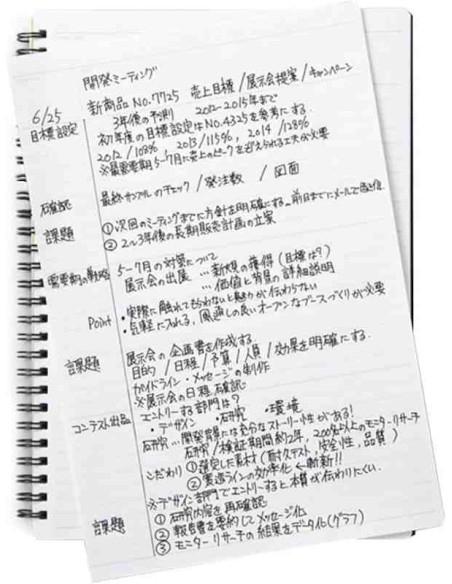 開発ミーティング
6/25 新商品NO.7725 売上目標/展示会提案/キャンペーン
目標設定 3年後の予測 2012-2015年まで
初年度の目標設定はNO.4325を参考にする。
2012/108%, 2013/115%, 2014/128%
※最需要期5-7月に売上のピークを迎えられる工夫が必要
確認 最終サンプルのチェック / 発注数 / 図面
課題 ①次回のミーティングまでに方針を明確にする。前日までにメールで
②2〜3年後の長期販売計画の立案
需要期の戦略 5-7月の対策について
展示会の出展 …新規の獲得(目標は?)
…価値と背景の詳細説明
Point ・実際に触れてもらわないと魅力が伝わらない
・気軽に入れる、風通しの良いオープンなブースづくりが必要
課題 展示会の企画書を作成する。
目的/日程/予算/人員/効果を明確にする。
ガイドライン・メッセージの制作
※展示会の日程確認
コンテスト出品 エントリーする部門は?
・デザイン ・研究 ・環境
研究…開発背景には充分なストーリー性がある!
研究/検証期間約2年、200名以上のモニターリサーチ
こだわり ①選定した素材(耐久テスト、安全性、品質)
②製造ラインの効率化 ←斬新!!
※デザイン部門でエントリーすると本質が伝わりにくい。
課題 ①研究内容を再確認
②報告書を要約してメッセージ化
③モニターリサーチの結果をデータ化(グラフ)